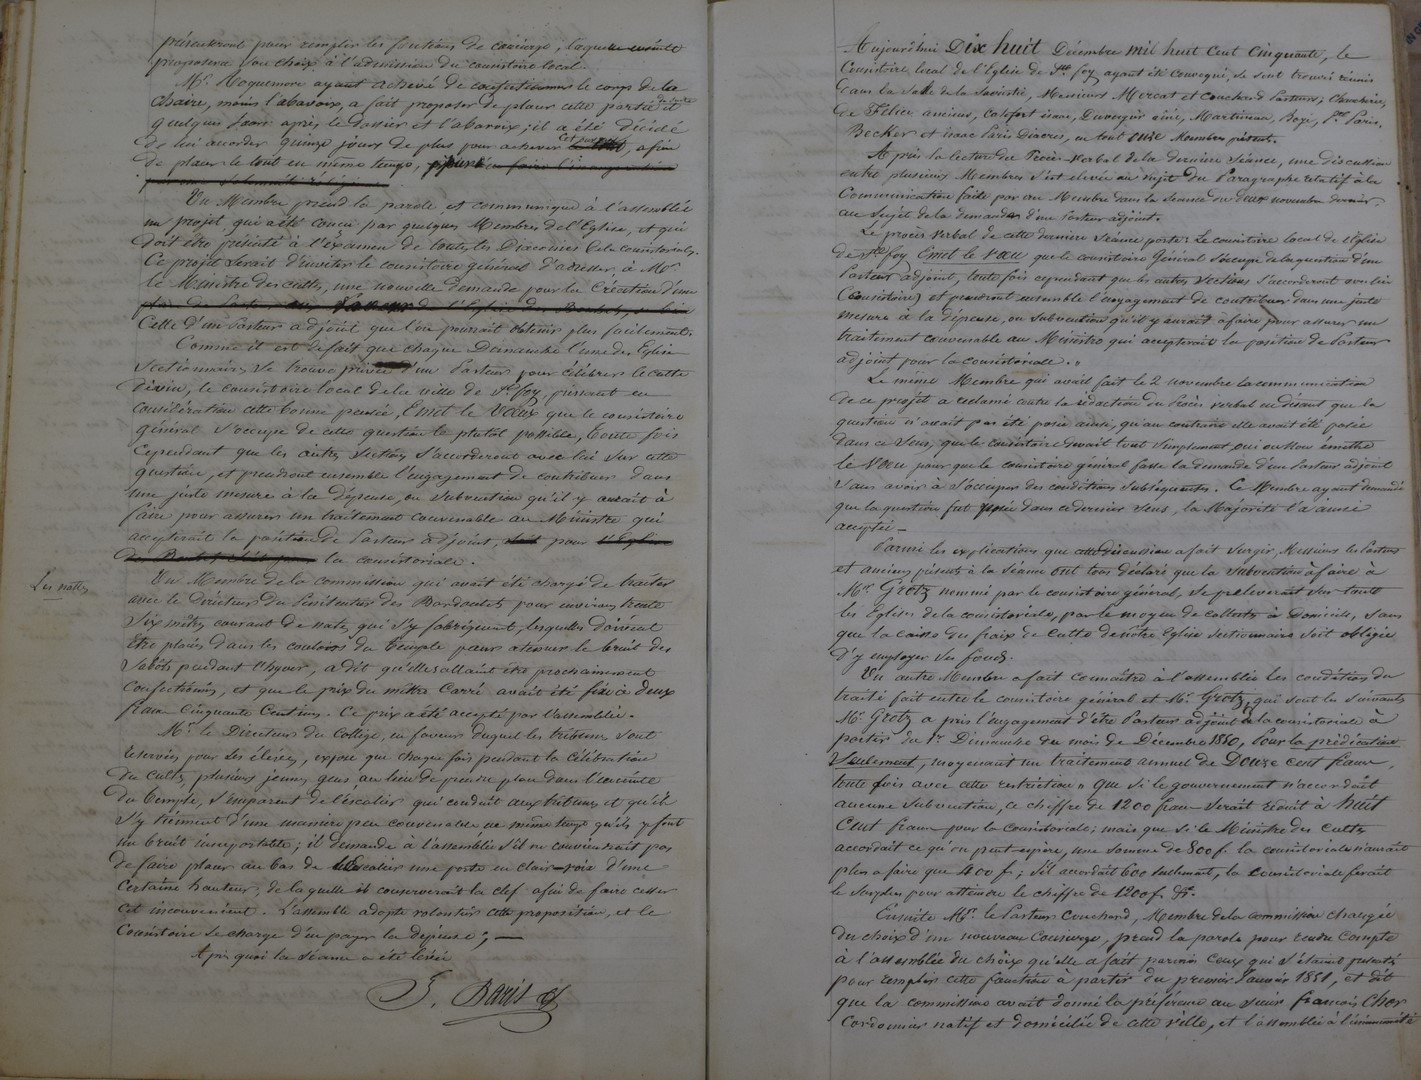 présenteront pour remplir les fonctions de concierge, laquelle ensuite
proposera son choix à l'admission du consistoire local.
Mr. Roquemore ayant achevé de confectionner le corps de la
Chaire, moins l'abavoix, a fait proposer de placer cette partie et
quelques jours après le Dossier et l'abavoix; il a été décidé
de lui accorder quinze jours de plus pour achever cet ouvrage, afin
de placer le tout en même temps, pour en faire l'inauguration
par une solemnité réligieuse.
Un Membre prend la parole et communique à l'assemblée
un projet, qui a été conçu par quelques Membres de l'Eglise, et qui
doit être présenté à l'éxamen de toutes les Diaconies de la consistoriale.
Ce projet serait d'inviter le consistoire général d'adresser, à Mr.
le Ministre des cultes, une nouvelle demande pour la Création d'une
Celle d'un Pasteur adjoint que l'on pourrait obtenir plus facilement.
Comme il est de fait que chaque Dimanche l'une des Eglise
Sectionnaires se trouve privée d'un Pasteur pour célébrer le culte
divin, le consistoire local de la ville de Ste foy, prenant en
considération cette bonne pensée, Emet le Vœux que le consistoire
général s'occupe de cette question le plutot possible, toute fois
cependant que les autres sections s'accorderont avec lui sur cette
question, et prendront ensemble l'engagement de contribuer dans
une juste mesure à la dépense, ou Subvention qu'il y aurait à
faire pour assurer un traitement convenable au Ministre qui
accepterait la position de Pasteur adjoint, pour
la consistoriale.
Les nattes
Un Membre de la commission qui avait été chargé de traiter
avec le Directeur du Pénitencier des Bardoulets pour environ trente
six mètres courant de nates qui s'y fabriquent, lesquelles doivent
être placés dans les couloirs du temple pour atténuer le bruit des
Sabots pendant l'hyver, a dit qu'elles allaient être prochainement
confectionnés, et que le prix du mètre Carré avait été fixé à deux
francs Cinquante Centimes. Ce prix a été accepté par l'assemblée.
Mr. le Directeur du Collège, en faveur duquel les tribunes sont
reservées pour ses élèves, expose que chaque fois pendant la célébration
du Culte, plusieurs jeunes gens au lieu de prendre place dans l'enceinte
du temple, s'emparent de l'éscalier qui conduit aux tribunes et qu'ils
s'y tiennent d'une manière peu convenable en même temps qu'ils y font
un bruit insuportable; il demande à l'assemblée s'il ne conviendrait pas
de faire placer au bas de l'Escalier une porte en clair-voie d'une
certaine hauteur, de laquelle il conserverait la clef afin de faire cesser
cet inconvenient. L'assemblé adopte volontiers cette proposition, et le
Consistoire se charge d'en payer la depense; —
Après quoi la séance a été levée
Aujourd'hui Dix huit Décembre mil huit Cent Cinquante, le
Consistoire local de l'Eglise de Ste foy ayant été convoqué, se sont trouvés réunis
dans la Salle de la Sacristie, Messieurs Mercat et Couchard Pasteurs,
de Félice anciens, Calesfort isaac, Duvergier ainé, Martineau,
Becker et isaac Paris Diacres, en tout onze Membres présent.
Après la lecture du Procès-Verbal de la derniere Séance, une discussion
entre plusieurs Membres s'est élevée au sujet du Paragraphe relatif à la
Communication faite par un Membre dans la Séance du deux novembre dernier,
au sujet de la demande d'un Pasteur adjoint.
Le procès verbal de cette derniere Séance porte: Le consistoire local de l'Eglise
de Ste foy Emet le vœu que le consistoire Général s'occupe de la question d'un
Pasteur adjoint, toute fois cependant que les autres Sections s'accorderont avec lui
(consistoire) et prendront ensemble l'engagement de contribuer dans une juste
mesure à la dépense, ou subvention qu'il y aurait à faire pour assurer un
traitement convenable au Ministre qui accepterait la position de Pasteur
adjoint pour la consistoriale. "
Le même Membre qui avait fait le 2 novembre la communication
de ce projet a reclamé contre la rédaction du Procès verbal en disant que la
question n'avait pas été posée ainsi, qu'au contraire elle avait été posée
dans ce sens, que le consistoire devait tout simplement, oui ou Non émettre
le Vœu pour que le consistoire général fasse la demande d'un Pasteur adjoint
sans avoir à s'occuper des conditions subséquentes. Ce Membre ayant demandé
que la question fut posée dans ce dernier sens, la Majorité l'a ainsi
acceptée —
Parmi les explications que cette discussion a fait surgir, Messieurs les Pasteurs
et anciens présents à la séance ont tous déclaré que la subvention à faire à
Mr. Grotz nommé par le consistoire général, se préleverait sur toute
les Eglises de la consistoriale, par le moyen de collectes à Domicile, sans
que la caisse des fraix de Culte de nôtre Eglise Sectionnaire soit obligée
d'y employer ses fonds.
Un autre Membre a fait connaître à l'assemblée les conditions du
traité fait entre le consistoire général et Mr. Grotz, qui sont les suivants
Mr. Grotz a pris l'engagement d'être Pasteur adjoint à la consistoriale à
partir du 1er Dimanche du mois de Décembre 1850, Pour la prédication
Seulement, moyenant un traitement annuel de Douze cent francs,
toute fois avec cette restriction " Que si le gouvernement n'accordait
aucune subvention, ce chiffre de 1200 francs serait réduit à huit
Cent francs pour la Consistoriale; mais que si le Ministre des cultes
accordait ce qu'on peut espérer, une somme de 800 f. la consistoriale n'aurait
plus a faire que 400 f; s'il accordait 600 seulement, la Consistoriale ferait
le Surplus pour atteindre le chiffre de 1200 f.
Ensuite Mr. le Pasteur Couchard, Membre de la commission chargée
du choix d'un nouveau Concierge, prend la parole pour rendre Compte
à l'assemblée du choix qu'elle a fait parmi Ceux qui s'étaient présentés
pour remplir cette fonction à partir du premier Janvier 1851, et dit
que la commission avait donné la préférence au sieur francois Cher
Cordonnier natif et domicilié de cette ville, et l'assemblée à l'unanimité